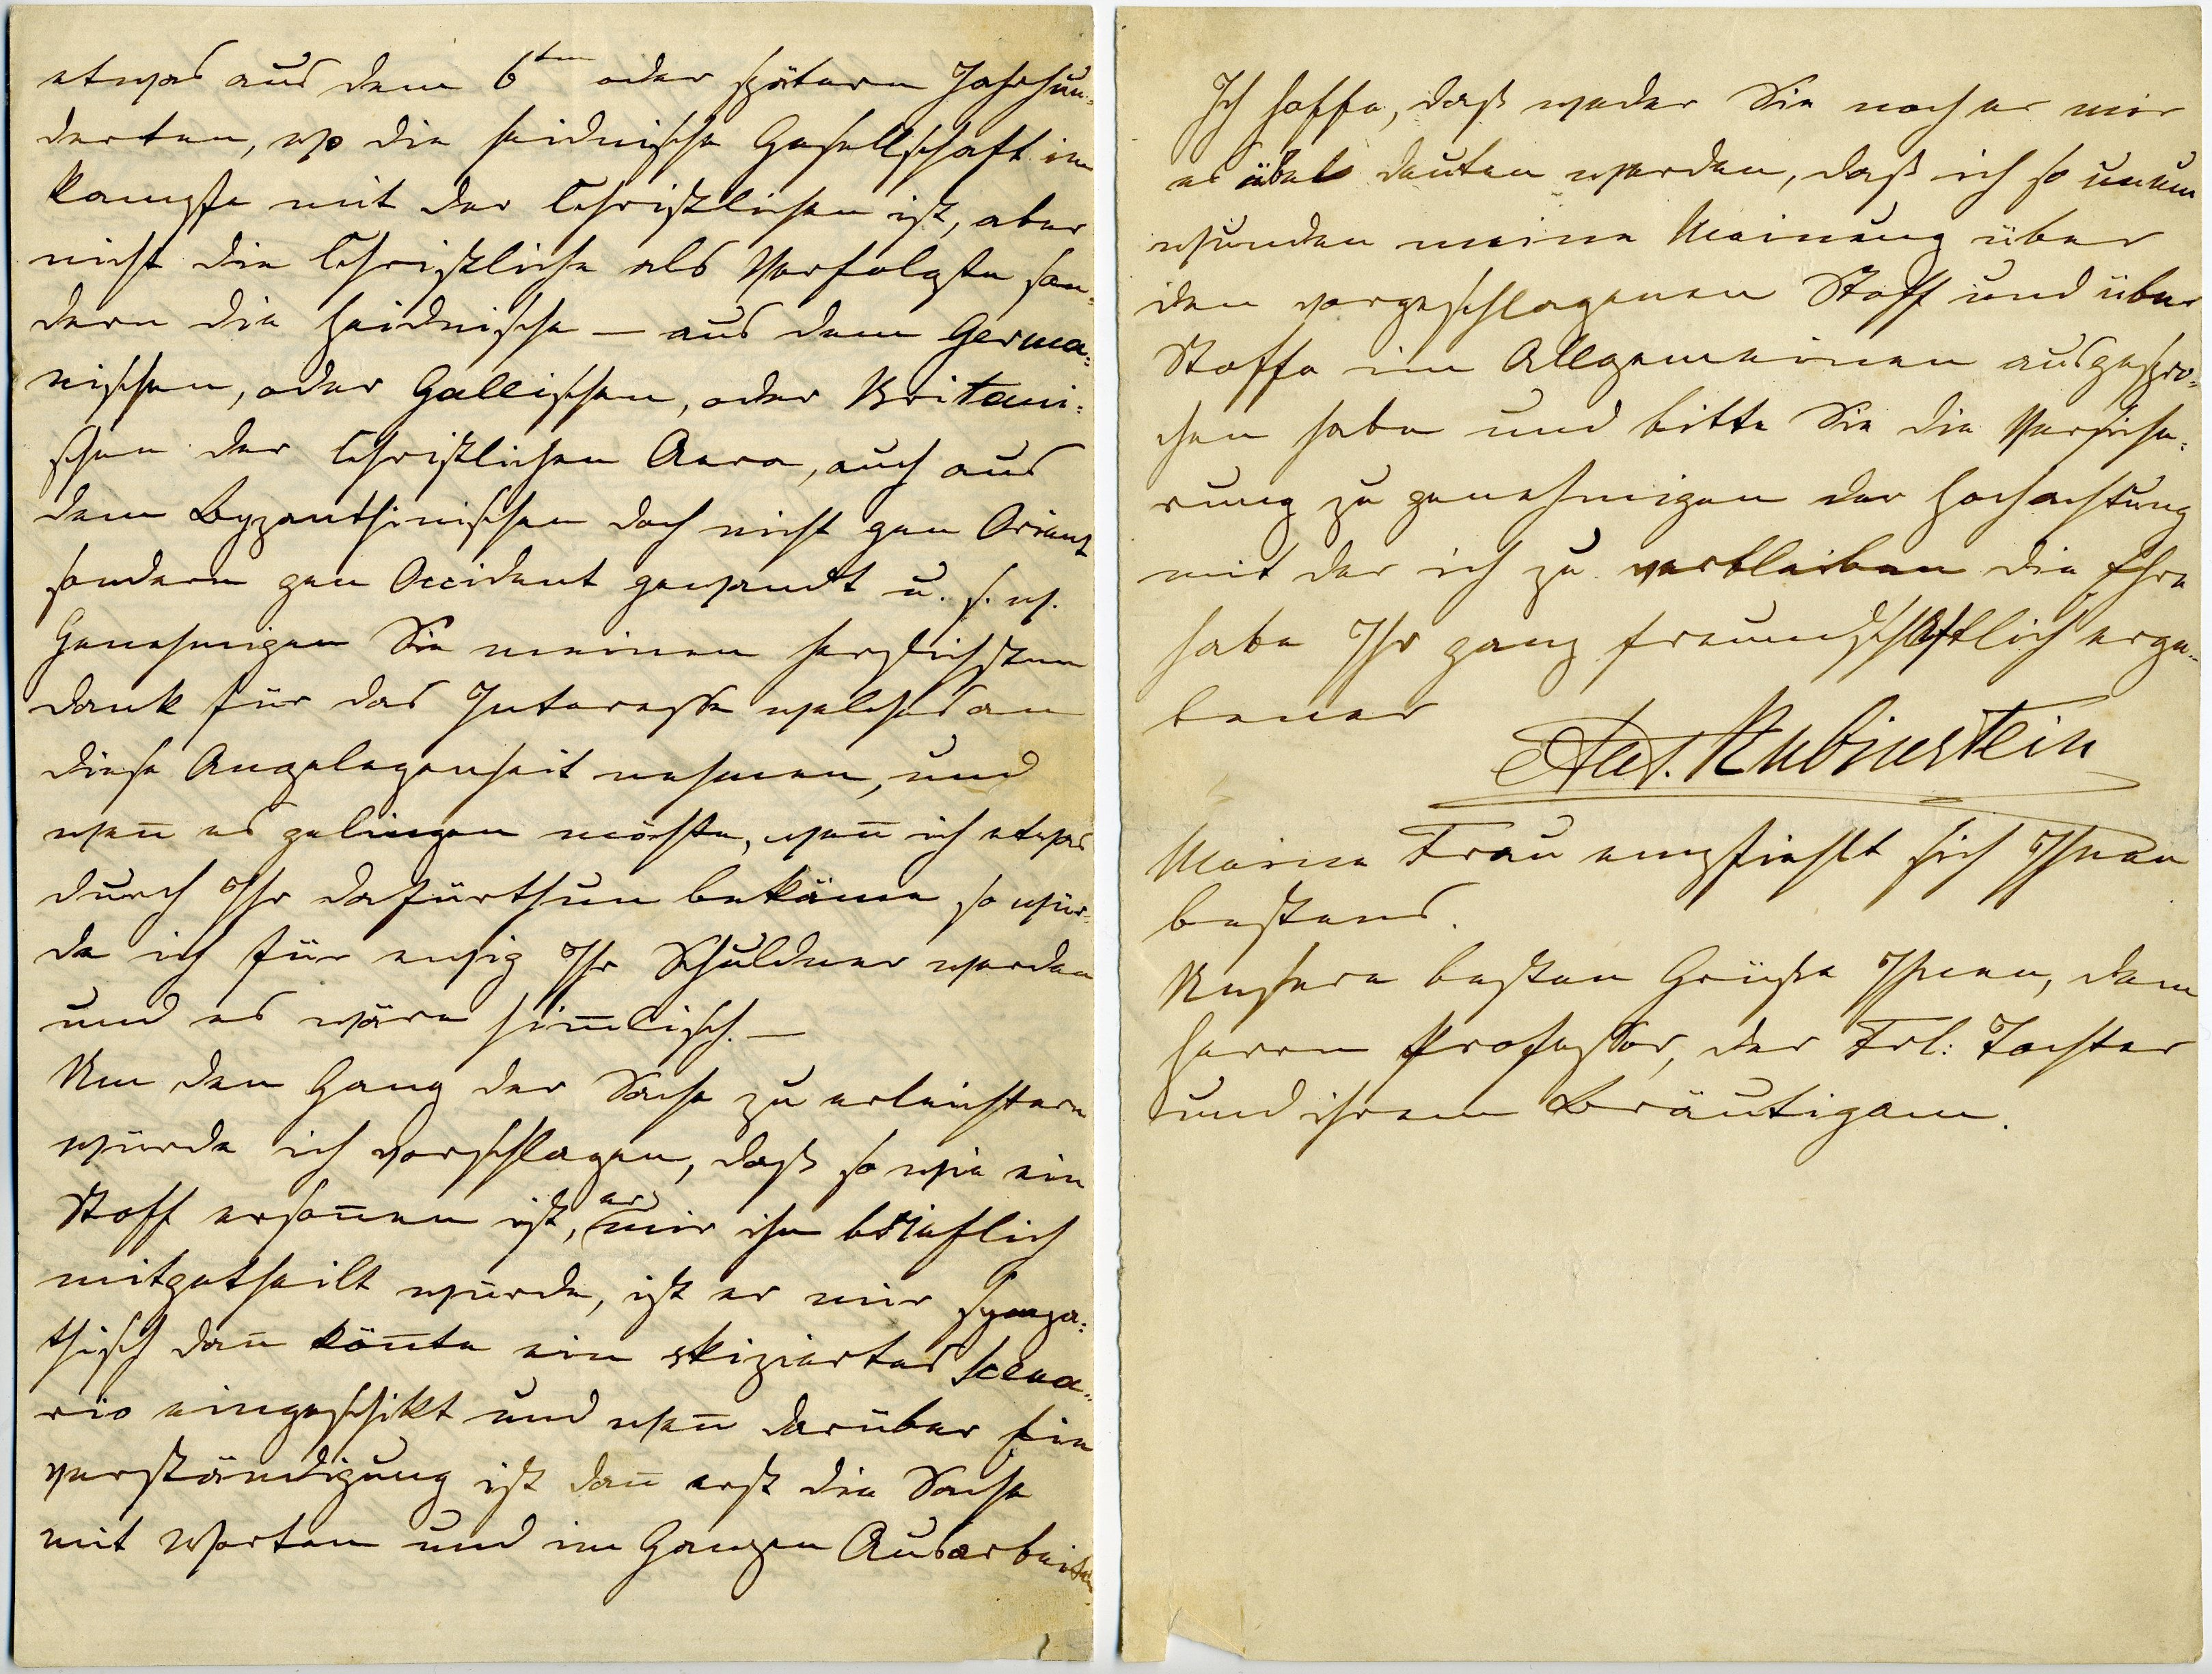 etwas aus dem 6ten oder spätern Jahrhun-
derten, wo die heidnische Gesellschaft im
Kampfe mit der Christlichen ist, aber
nicht die Christliche als Verfolgte son-
dern die heidnische — aus dem Germa-
nischen, oder Gallischen, oder Britani-
schen der Christlichen Aera, auch aus
dem Byzanthinischen doch nicht gen Orient
sondern gen Occident gewandt u. s. w.
Genehmigen Sie meinen herzlichsten
Dank für das Interesse welches an
diese Angelegenheit nehmen, und
wen̄ es gelingen möchte, wen̄ ich etwas
durch Ihr dafürthun bekäme so wür-
de ich für ewig Ihr Schuldner werden
und es wäre him̄lisch. —
Um den Gang der Sache zu erleichtern
würde ich vorschlagen, daß so wie ein
Stoff erson̄en ist, er mir ihn brieflich
mitgetheilt würde, ist er mir sympa-
thisch dan̄ kön̄te ein skiziertes Scena-
rio eingeschikt und wen̄ darüber Ein
verständigung ist dan̄ erst die Sache
mit Worten und im Ganzen Ausarbeiten
Ich hoffe, daß weder Sie noch er mir
es übel deuten werden, daß ich so unum
wunden meine Meinung über
den vorgeschlagenen Stoff und über
Stoffe im Allgemeinen ausgespro-
chen habe und bitte Sie die Versiche-
rung zu genehmigen der Hochachtung
mit der ich zu verbleiben die Ehre
habe Ihr ganz freundschaftlich erge-
bener
Ant. Rubinstein
Meine Frau empfiehlt sich Ihnen
bestens.
Unsere besten Grüße Ihnen, dem
Herrn Professor, der Frl: Tochter
und ihrem Bräutigam.